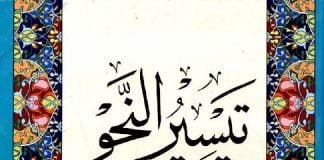 تيسير النَّحو